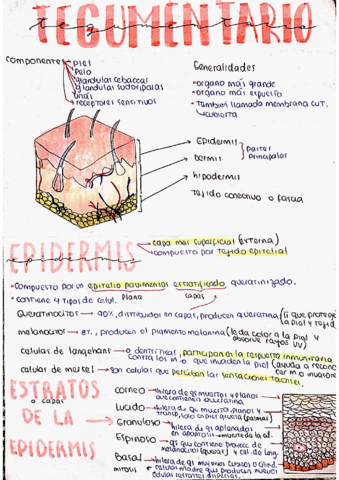 TEGUMENTARIO
tegumentario
componentes
piel
Pelo
glandulas cebaceas
glandulas sudoriparas
unas
receptores sensitivos
Generalidades
• organo más grande
• organo más
• También llamada membrana CUT.
cubierta
Epidermis
Dermis
partes
principales
hipodermis
Tejido conectivo o fascia
EPIDERMIS
epidermis
capa mas superficial (externa)
compuesto por tejido epitelial
• Compuesta por un epitelio pavimentos estratificado queratinizado.
plana
capas
• contiene 4 tipos de celul.
Queratinocitos → 90%, distribuidos en capas, producen queratina
la piel y
melanocitos → 8%, producen el pigmento melanina (le da color a la piel y
absorve rayos UV)
celulas de langerhans → o dentritricas, participan en la respuesta inmunitaria
contra los m.o que invaden la piel
celulas de merkel → son celulas que perciben las sensaciones tactiles.
ESTRATOS
o capas
DE LA
EPIDERMIS
corneo → hilera de muertos y planos
que contienen queratina.
Lucido → hilera de muertas, planos y
solo en piel gruesa (palmas)
Granuloso → hilera de aplanados
en apoptosis → muerte de la cel.
Espinoso → que contiene proyecc de
melanocitos y cel. de lang.
Basal → hilera de
mitosis
celulas madre que producen nuevas
celulas